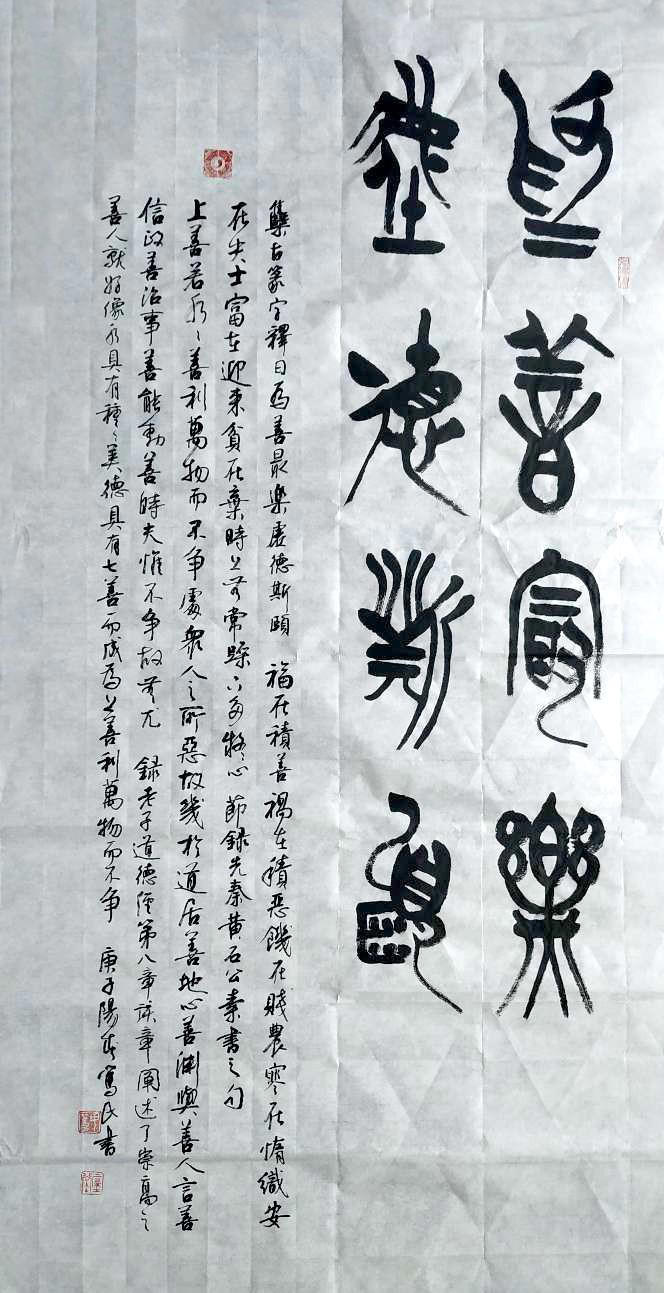 為善最樂
處德斯頤
集古篆字釋曰為善最樂處德斯頤 福在積善禍在積惡饑在賤農寒在惰織安
在失士富在迎来貧在棄時上无常躁下多疑心 節録先秦黄石公素書之句
上善若水水善利萬物而不争處衆人之所惡故幾於道居善地心善渊與善人言善
信政善治事善能動善時夫惟不争故無尤 録老子道德經第八章該章闡述了崇高之
善人就好像水具有種種美德具有七善而成為上善利萬物而不争 庚子陽春寫民書